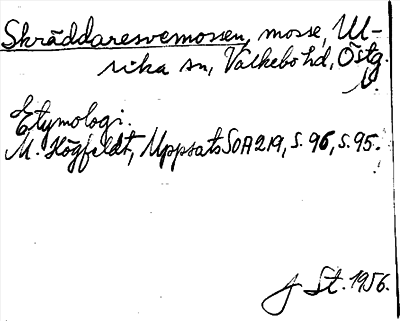 Skräddaresvemossen, mosse, Ul-
rika sn, Valkebo hd, Östg.
Etymologi.
M. Högfeldt, Uppsats SOA 219, s. 96, s. 95.
St. 1956.